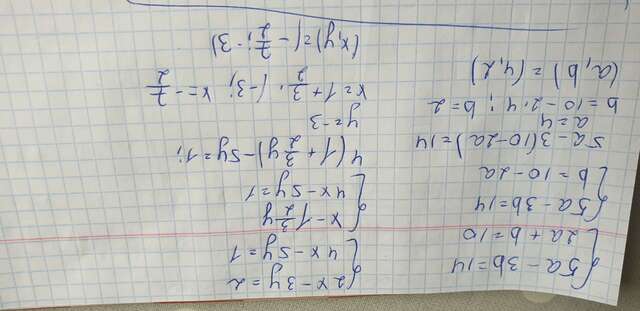 {5a - 3b = 14
{2a + b = 10
{5a - 3b = 14
{b = 10 - 2a
5a - 3(10 - 2a) = 14
a = 4
b = 10 - 2·4; b = 2
(a, b) = (4, 2)
{2x - 3y = 2
{4x - 5y = 1
{x - 1 3/2 y
{4x - 5y = 1
4(1 + 3/2 y) - 5y = 1;
y = -3
x = 1 + 3/2 · (-3; x = -7/2
(x, y) = (-7/2; -3)